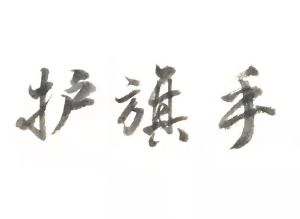 护旗手